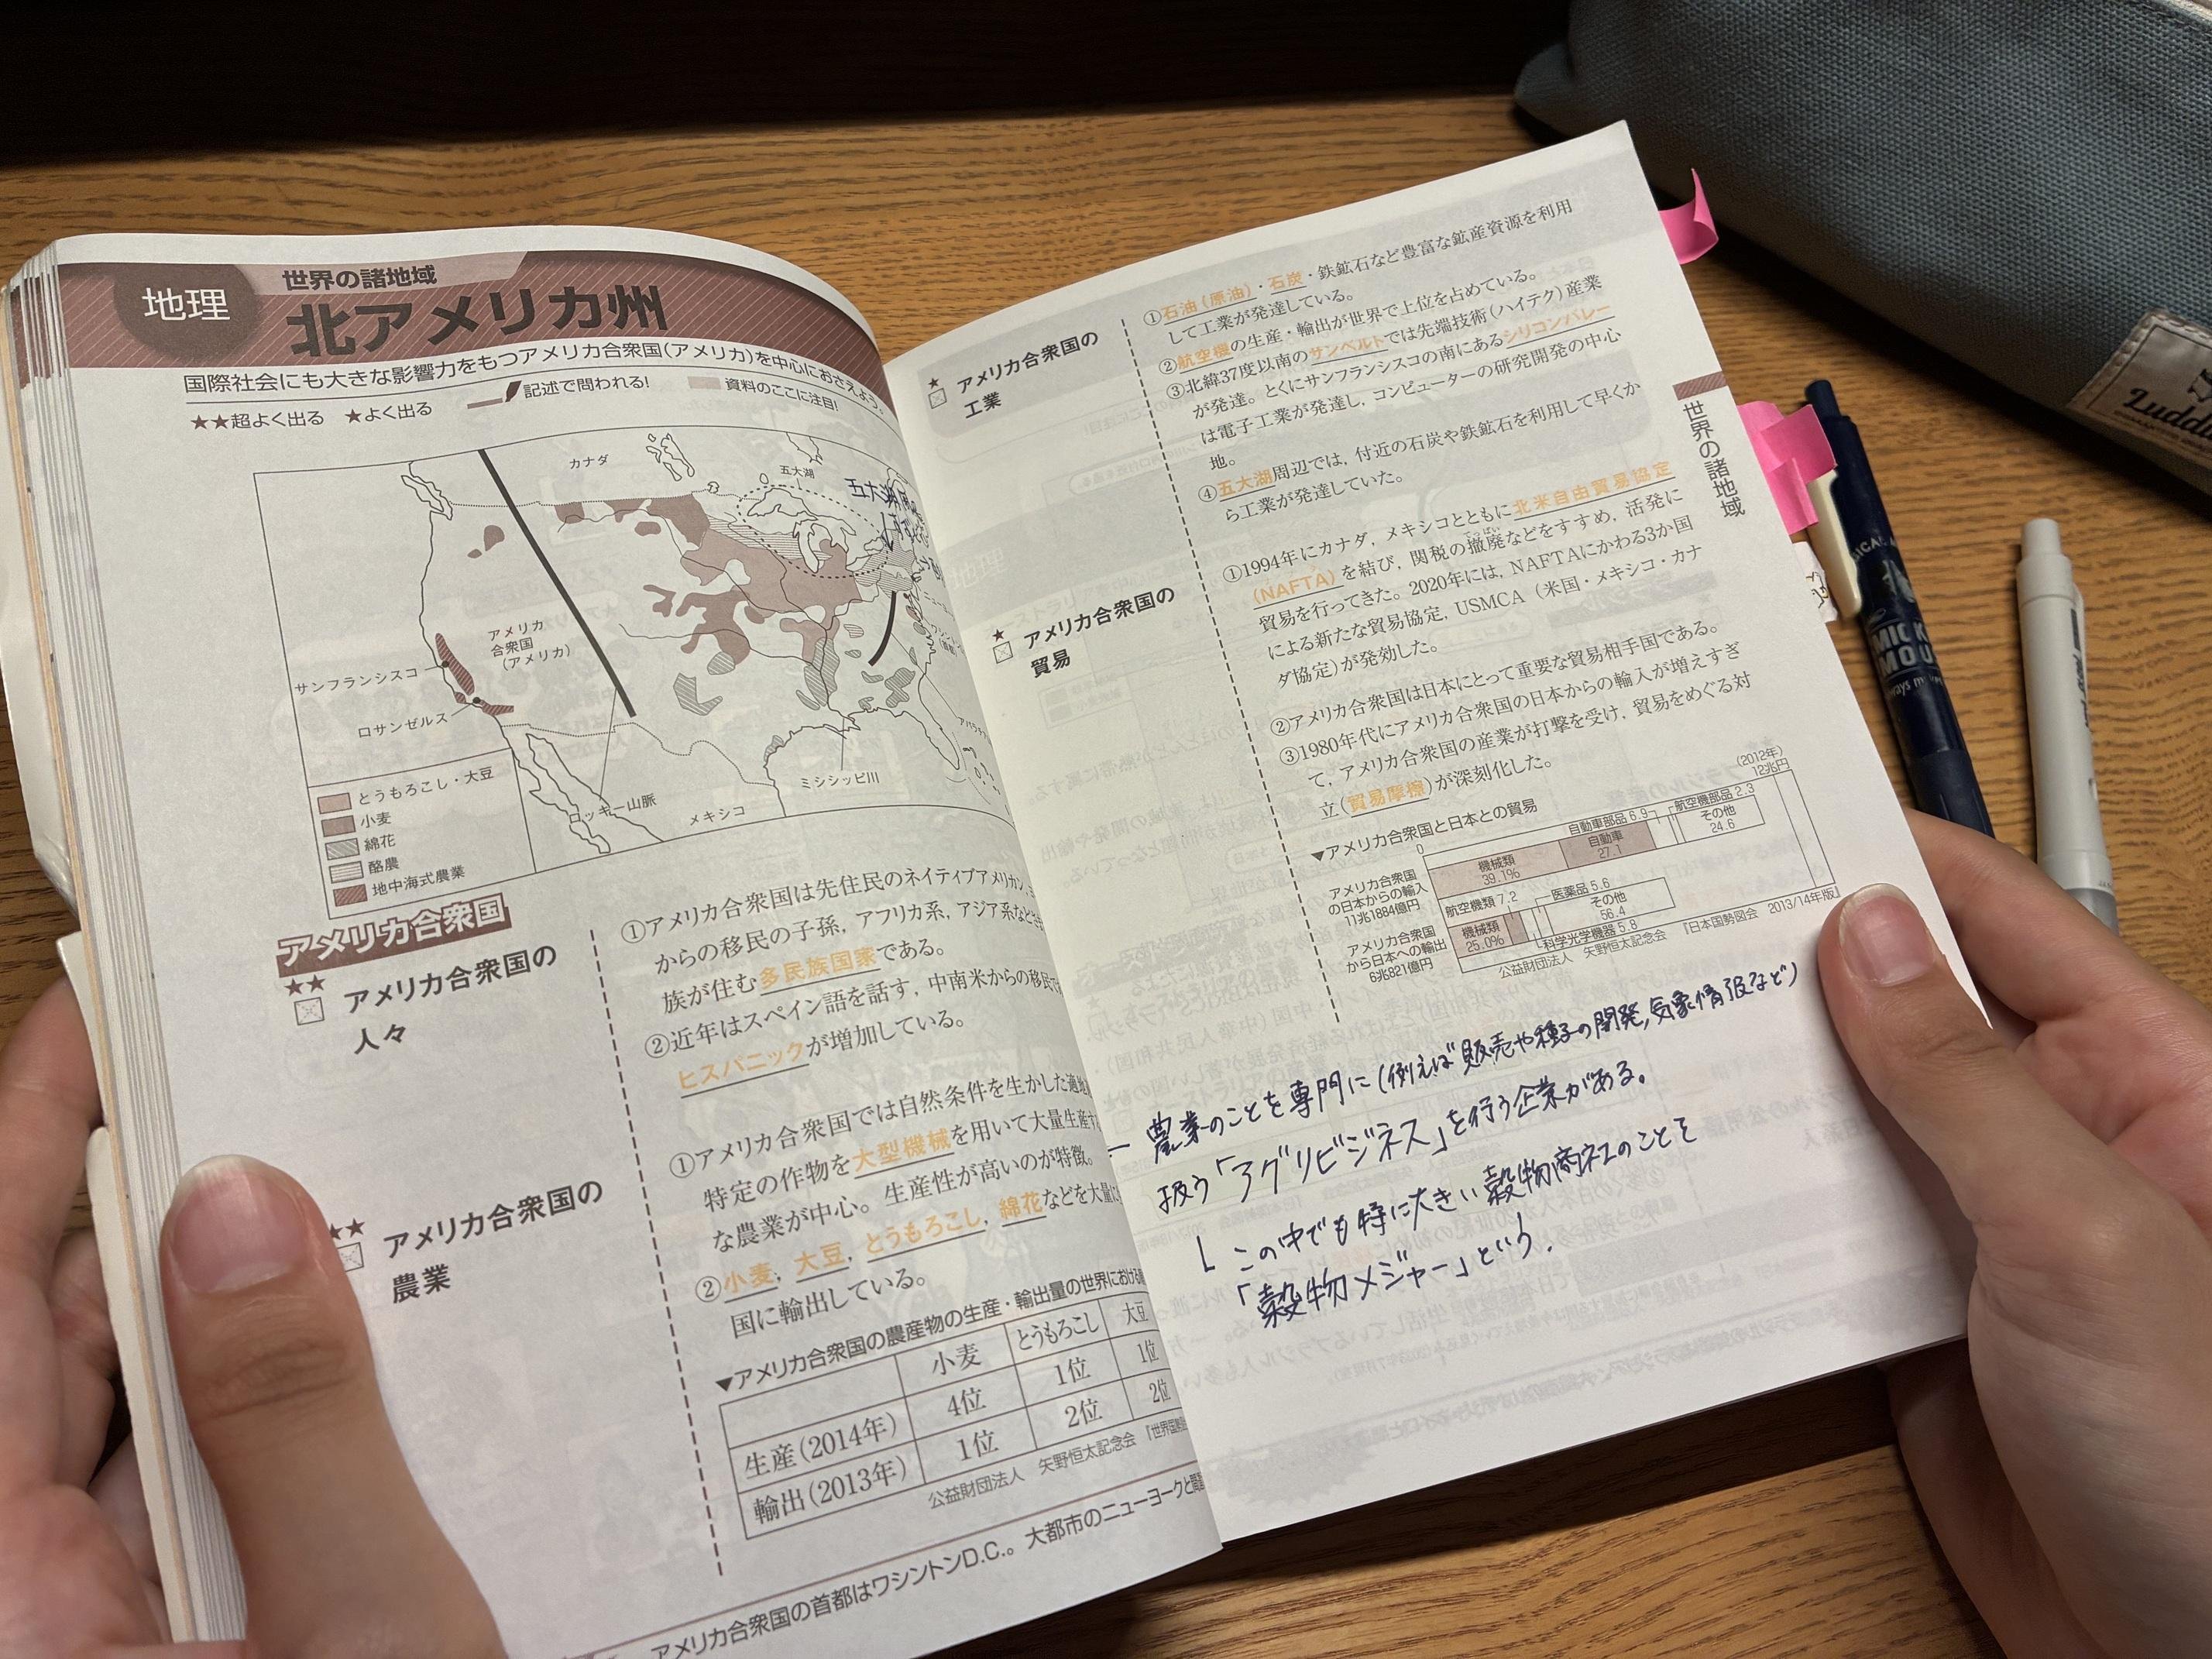 地理
世界の諸地域
北アメリカ州
国際社会にも大きな影響力をもつアメリカ合衆国(アメリカ)を中心におさえよう。
★★超よく出る ★よく出る 記述で問われる! 資料のここに注目!
カナダ
五大湖
五大湖
アメリカ
合衆国
(アメリカ)
サンフランシスコ
ロサンゼルス
ロッキー山脈
メキシコ
ミシシッピ川
とうもろこし・大豆
小麦
綿花
酪農
地中海式農業
アメリカ合衆国
★★
アメリカ合衆国の
人々
①アメリカ合衆国は先住民のネイティブアメリカン,
からの移民の子孫, アフリカ系, アジア系など
族が住む多民族国家である。
②近年はスペイン語を話す, 中南米からの移民
ヒスパニックが増加している。
★★
アメリカ合衆国の
農業
①アメリカ合衆国では自然条件を生かした適地
特定の作物を大型機械を用いて大量生産
な農業が中心。生産性が高いのが特徴。
②小麦, 大豆, とうもろこし, 綿花などを大量に
国に輸出している。
▼アメリカ合衆国の農産物の生産・輸出量の世界における
小麦 とうもろこし 大豆
生産(2014年) 4位 1位 1位
輸出(2013年) 1位 2位 2位
公益財団法人 矢野恒太記念会 「世界国勢
アメリカ合衆国の首都はワシントンD.C.。大都市のニューヨークと
★
アメリカ合衆国の
工業
①石油(原油)・石炭・鉄鉱石など豊富な鉱産資源を利用
して工業が発達している。
②航空機の生産・輸出が世界で上位を占めている。
③北緯37度以南のサンベルトでは先端技術(ハイテク)産業
が発達。とくにサンフランシスコの南にあるシリコンバレー
は電子工業が発達し, コンピューターの研究開発の中心
地。
④五大湖周辺では, 付近の石炭や鉄鉱石を利用して早くか
ら工業が発達していた。
★
アメリカ合衆国の
貿易
①1994年にカナダ, メキシコとともに北米自由貿易協定
(NAFTA)を結び, 関税の撤廃などをすすめ, 活発に
貿易を行ってきた。2020年には, NAFTAにかわる3か国
による新たな貿易協定, USMCA(米国・メキシコ・カナ
ダ協定)が発効した。
②アメリカ合衆国は日本にとって重要な貿易相手国である。
③1980年代にアメリカ合衆国の日本からの輸入が増えすぎ
て, アメリカ合衆国の産業が打撃を受け, 貿易をめぐる対
立(貿易摩擦)が深刻化した。
▼アメリカ合衆国と日本との貿易
(2012年)
0 12兆円
自動車部品 6.9 航空機部品 2.3
アメリカ合衆国
の日本からの輸入
11兆1884億円
機械類
39.1%
自動車
27.1
その他
24.6
航空機類 7.2 医薬品 5.6
アメリカ合衆国
から日本への輸出
6兆821億円
機械類
25.0%
その他
56.4
科学光学機器 5.8
公益財団法人 矢野恒太記念会 「日本国勢図会 2013/14年版」
世界の諸地域
農業のことを専門に(例えば販売や種子の開発,気象情報など)
扱う「アグリビジネス」を行う企業がある。
この中でも特に大きい穀物商社のことを
「穀物メジャー」という.